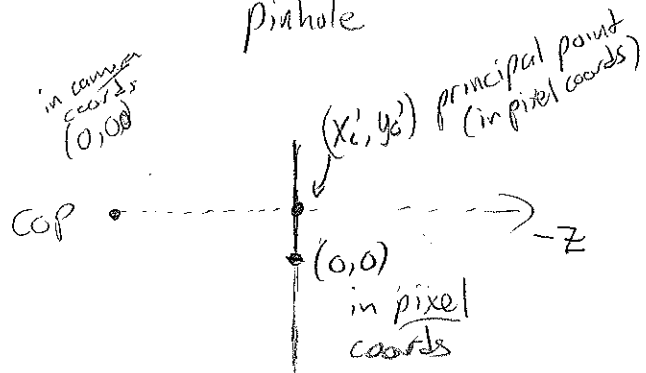 pinhole
in camera
coords
(0,0,0)
(x'c, y'c) principal point
(in pixel coords)
COP
-z
(0,0)
in pixel
coords